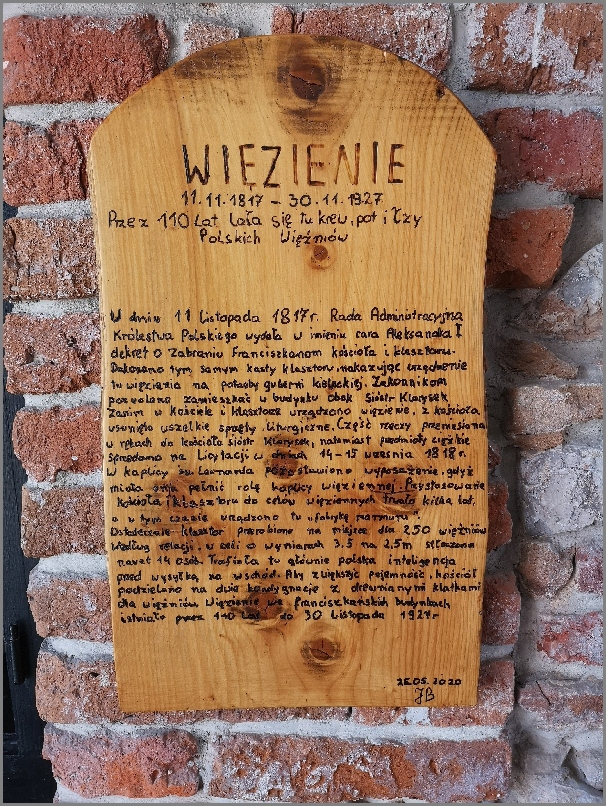 WIĘZIENIE
11.11.1817 - 30.11.1927
Przez 110 Lat lała się tu krew, pot i Łzy
Polskich Więźniów
W dniu 11 Listopada 1817r. Rada Administracyjna
Królestwa Polskiego wydała w imieniu cara Aleksandra I
dekret o Zabraniu Franciszkanom kościoła i klasztoru.
Dokonano tym samym kasty klasztoru, nakazując urządzenie
tu więzienia na potrzeby guberni kieleckiej. Zakonnikom
pozwolono zamieszkać w budynku obok Sióstr Klarysek
Zanim w kościele i klasztorze urządzono więzienie, z kościoła
usunięto wszelkie sprzęty Liturgiczne. Część rzeczy przeniesiono
w rękach do kościoła sióstr Klarysek, natomiast przedmioty ciężkie
Sprzedano na Licytacji w dniach 14-15 września 1818r.
W kaplicy św. Leonarda pozostawiono wyposażenie, gdyż
miała ona pełnić rolę kaplicy więziennej. Przystosowanie
kościoła i klasztoru do celów więziennych trwało kilka lat,
a w tym czasie urządzono tu „fabrykę marmuru”
Ostatecznie klasztor przerobiono na miejsce dla 250 więźniów
Według relacji, w celi o wymiarach 3,5 na 2,5m stłaczano
nawet 14 osób. Trafiała tu głównie polska inteligencja
przed wysyłką na wschód. Aby zwiększyć pojemność, kościół
podzielono na dwie kondygnacje z drewnianymi klatkami
dla więźniów Więzienie we franciszkańskich budynkach
istniało przez 110 lat do 30 Listopada 1927r
25.05.2020
JB